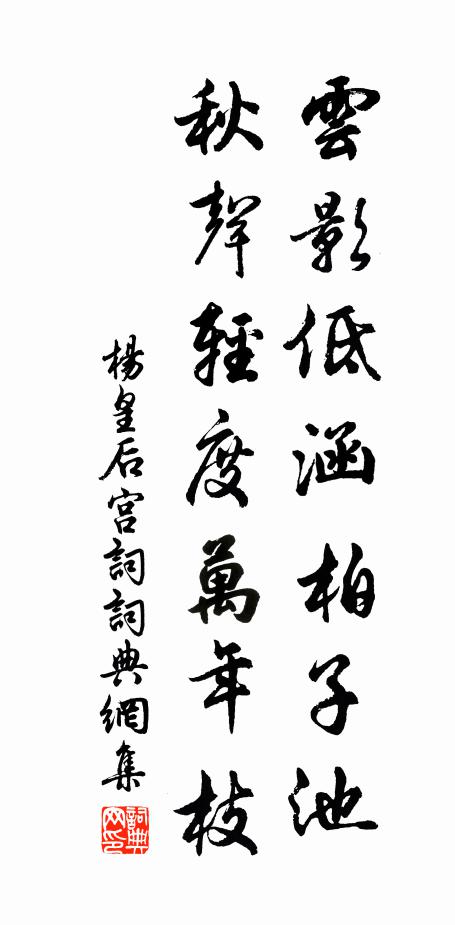 雲影低涵柏子池
秋聲輕度萬年枝
楊皇后宮詞詞典網集
詞典网印